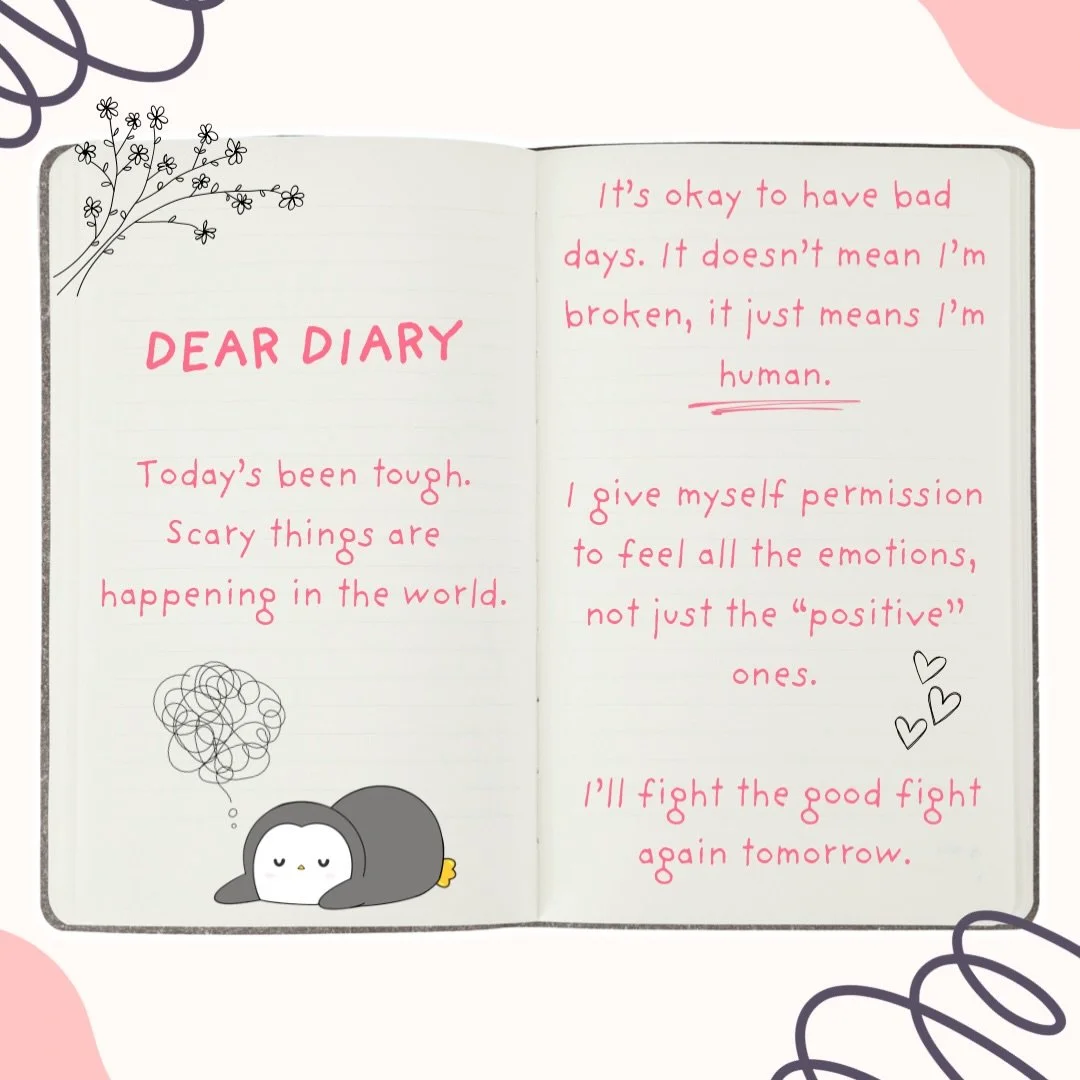 DEAR DIARY
Today's been tough.
Scary things are
happening in the world.
It's okay to have bad
days. It doesn't mean I'm
broken, it just means I'm
human.
I give myself permission
to feel all the emotions,
not just the “positive”
ones.
I'll fight the good fight
again tomorrow.